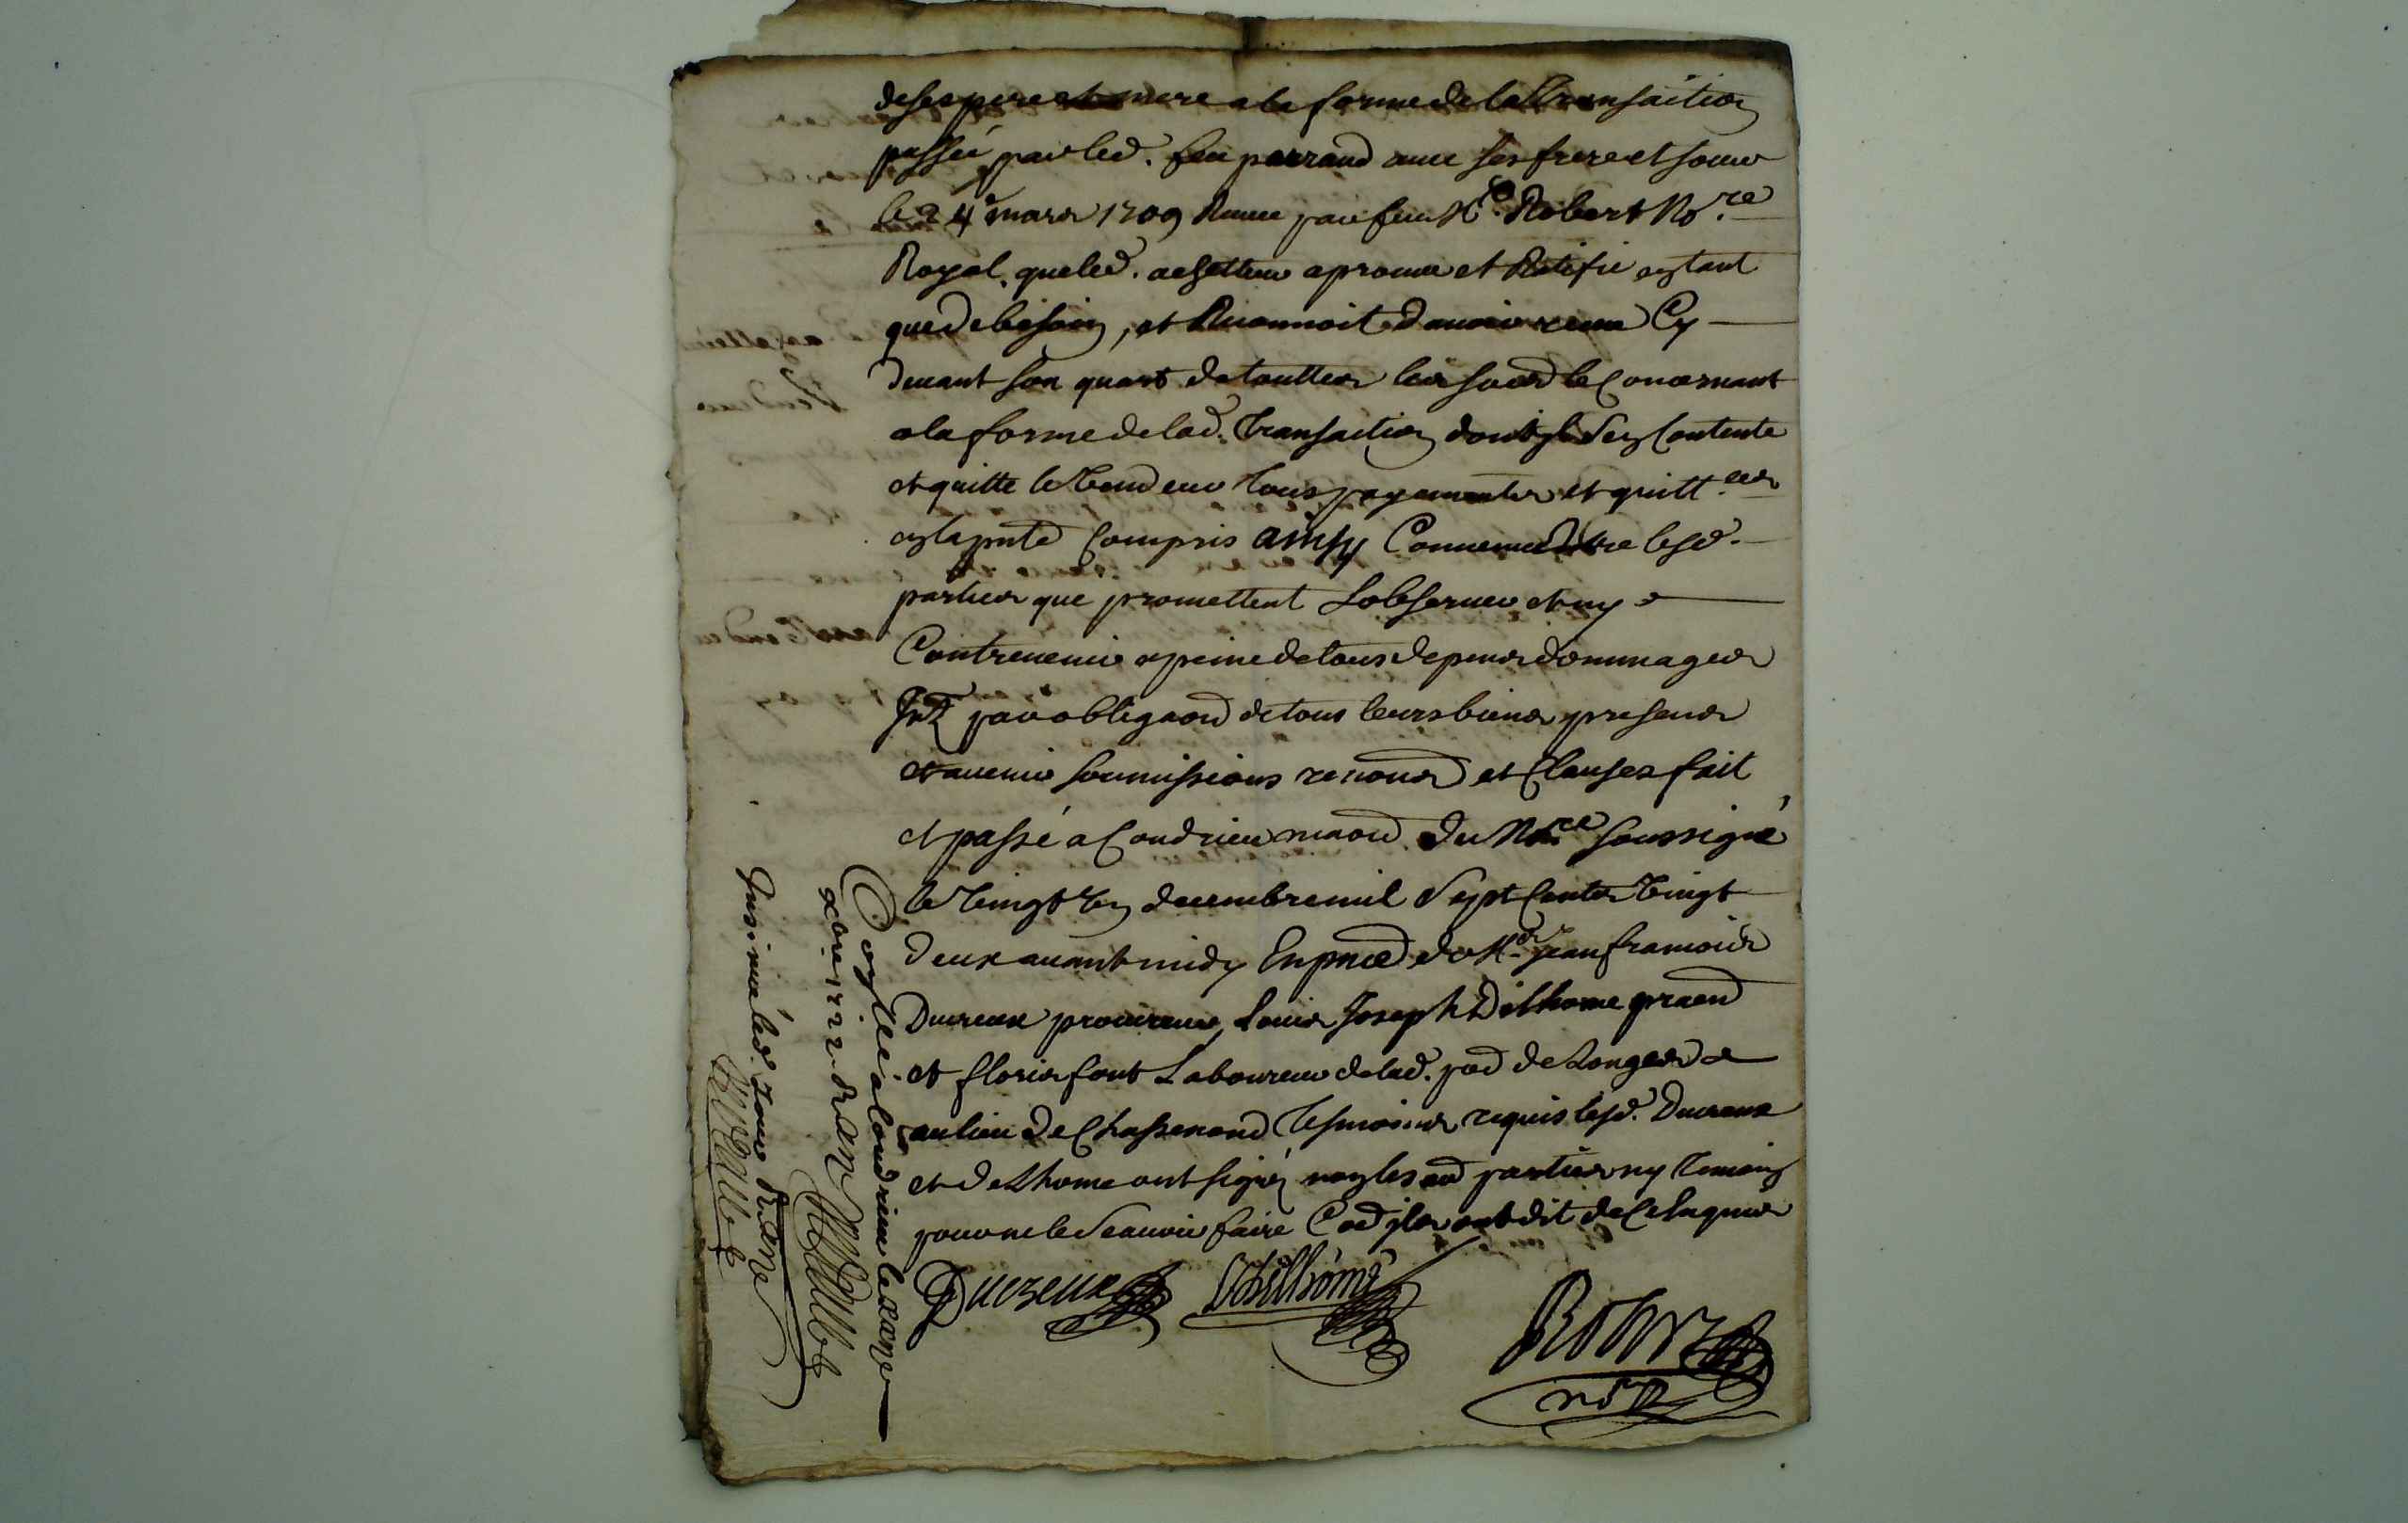 de ses pere et mere a la forme de la Transaction
passée par led. feu perrand avec ses frere et soeur
le 24 mars 1709 Receue par feu Me Robert No.re
Royal, que led. achetteur aprouve et Ratifie en tant
que de besoin, et Reconnoit d'avoir receu Cy
devant son quart de touttes les sud. le Concernant
a la forme de lad. Transaction dont il s'en Contente
et quitte le Vendeur tous payements et quitt.ces
en la pnte Compris ainsy Convenu Entre lesd.
parties que promettent L'observer et ny
Contrevenir a peine de tous depens dommages
Intz par obligaon de tous leurs biens presens
et avenir soumissions renons et Clauses fait
et passé a Condrieu maon du No.re soussigné
le Vingt Un decembre mil Sept Cents Vingt
deux avant midy En pnce de Me Jean francois
Ducreux procureur, Louis Joseph Delhome praen
et floris font Laboureur de lad. pae de Longes
au lieu de Chassenoud Tesmoins requis lesd. Ducreux
et Delhome ont signé non les au parties ny Temoin
pour ne le Scavoir faire Ce qu'ils ont dit de Ce Enquis
Ducreux Delhome
Robert
nore
Controllé a Condrieu le
xbre 1722 R
Insinué led. Jour R